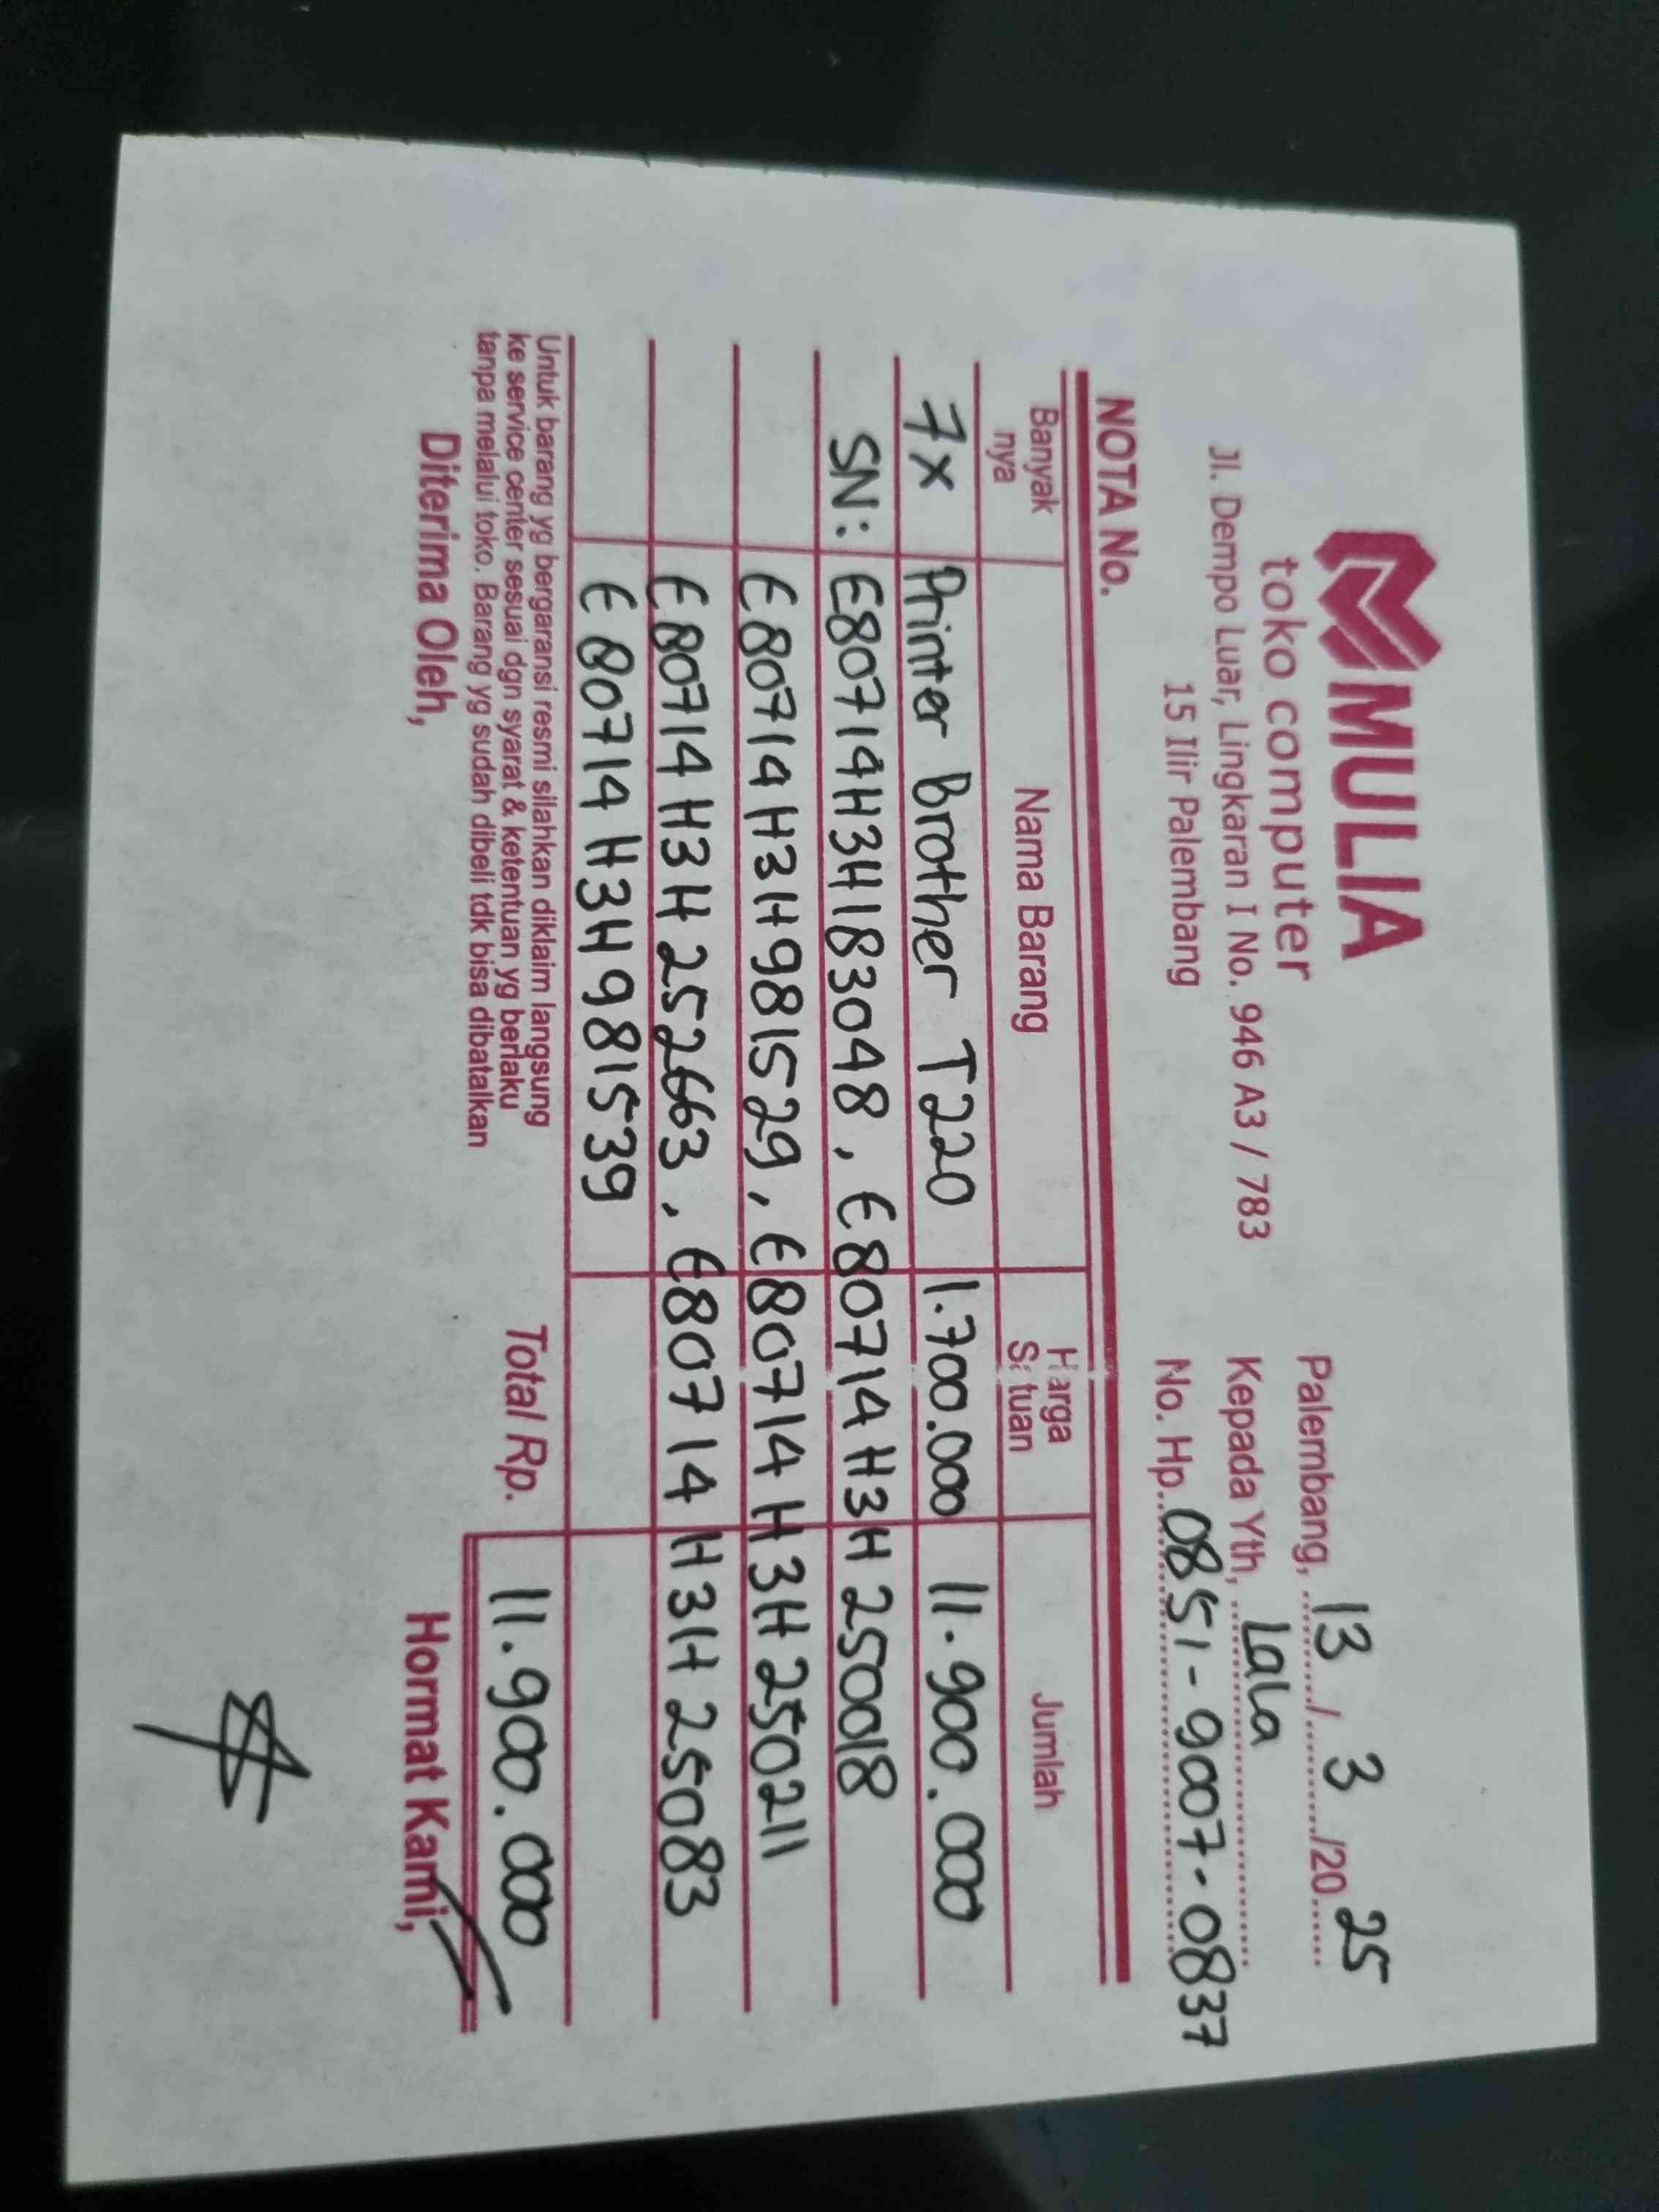 MULIA
toko computer
Jl. Dempo Luar, Lingkaran I No. 946 A3 / 783
15 Ilir Palembang
Palembang, 13 / 3 /20 25
Kepada Yth, Lala
No. Hp. 0851-9007-0837
NOTA No.
Banyak nya Nama Barang Harga Satuan Jumlah
7x Printer Brother T220 1.700.000 11.900.000
SN: E80714H3H183048, E80714H3H250018
E80714H3H981529, E80714H3H250211
E80714H3H252663, E80714H3H25083
E80714H3H981539
Untuk barang yg bergaransi resmi silahkan diklaim langsung
ke service center sesuai dgn syarat & ketentuan yg berlaku
tanpa melalui toko. Barang yg sudah dibeli tdk bisa dibatalkan
Total Rp. 11.900.000
Diterima Oleh, Hormat Kami,